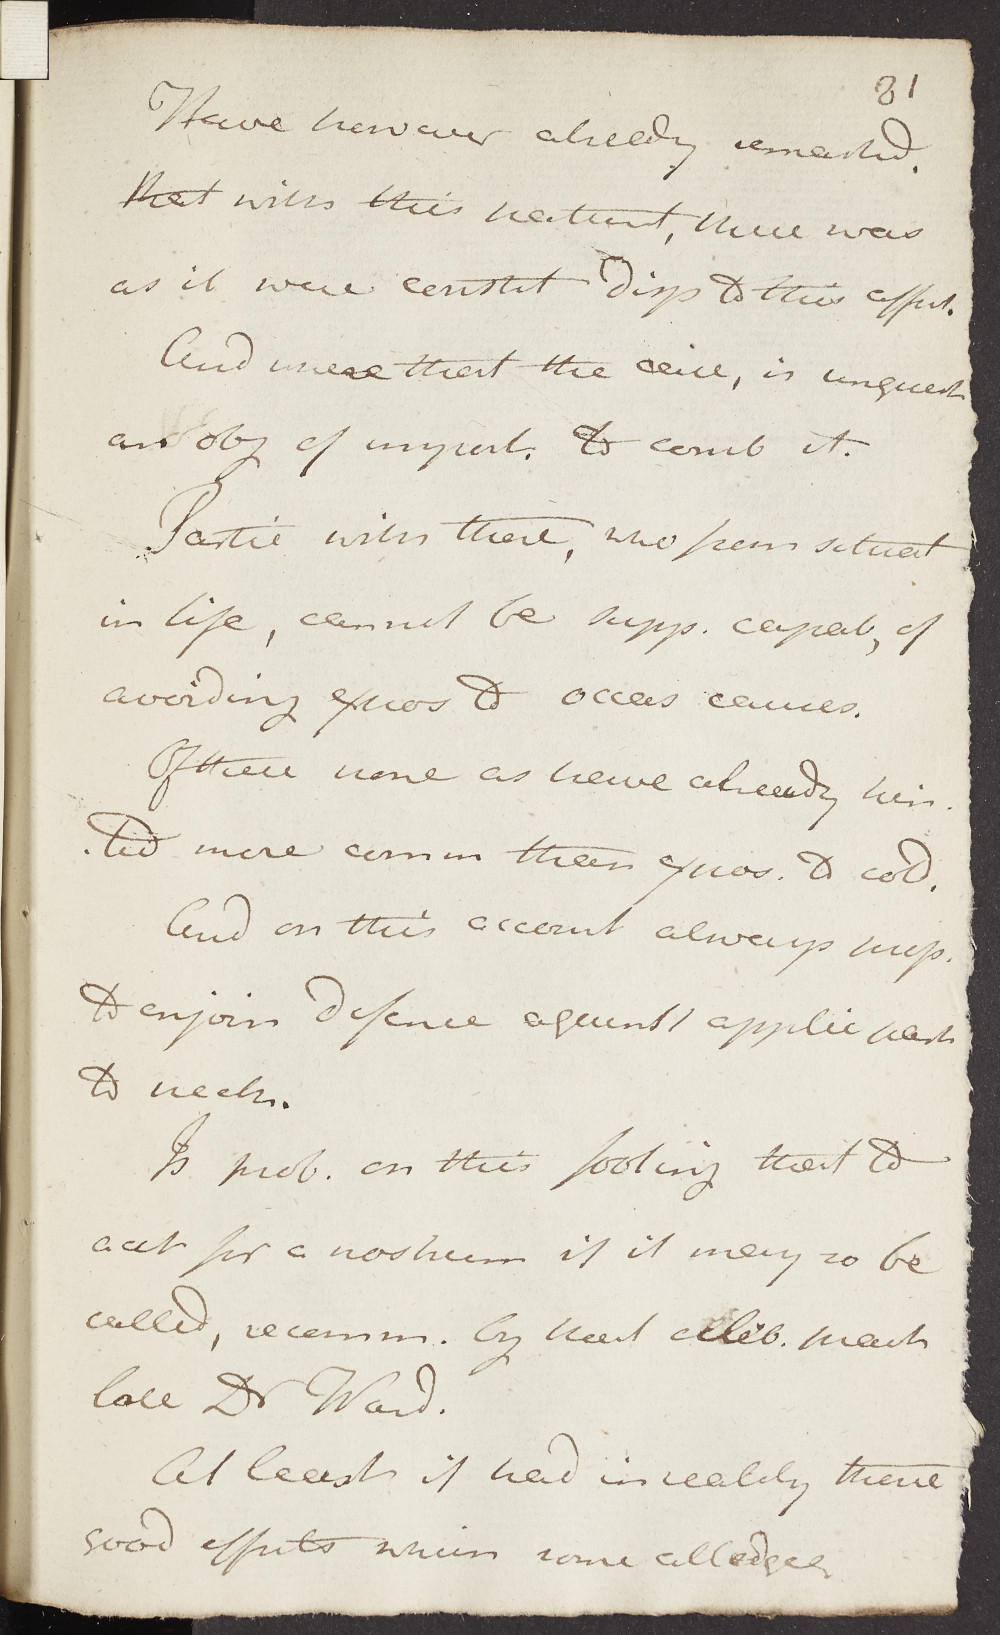 81
Have however already remarkd.
that with this patient, there was
as it were constit Disp to this effect.
And where that the case, is unquest
an obj of import. to comb it.
Partic with those, who from situat
in life, cannot be supp. capab, of
avoiding expos to occas causes.
Of these none as have already hin-
-ted more comm than expos. to cold.
And on this account always prop.
to enjoin defence against applic part
to neck.
Is prob. on this footing that to
act for a nostrum if it may so be
called, recomm. by that celeb. pract
late Dr Ward.
At least if had in reality those
good effects which some alledge,